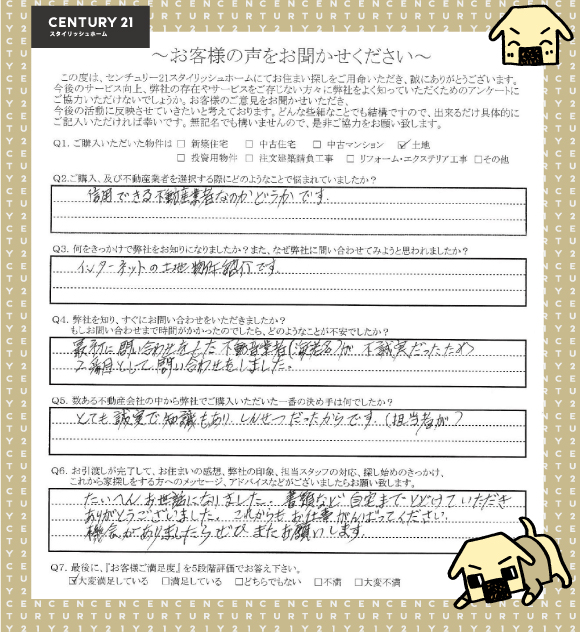 CENTURY 21
スタイリッシュホーム
～お客様の声をお聞かせください～
この度は、センチュリー21スタイリッシュホームにてお住まい探しをご用命いただき、誠にありがとうございます。
今後のサービス向上、弊社の存在やサービスをご存じない方々に弊社をよく知っていただくためのアンケートに
ご協力いただけないでしょうか。お客様のご意見をお聞かせいただき、
今後の活動に反映させていきたいと考えております。どんな些細なことでも結構ですので、出来るだけ具体的に
ご記入いただければ幸いです。無記名でも構いませんので、是非ご協力をお願い致します。
Q1. ご購入いただいた物件は □ 新築住宅 □ 中古住宅 □ 中古マンション ☑土地
□ 投資用物件 □ 注文建築請負工事 □ リフォーム・エクステリア工事 □その他
Q2.ご購入、及び不動産業者を選択する際にどのようなことで悩まれていましたか？
信用できる不動産業者なのかどうかです.
Q3. 何をきっかけで弊社をお知りになりましたか？また、なぜ弊社に問い合わせてみようと思われましたか？
インターネットの土地物件紹介です.
Q4. 弊社を知り、すぐにお問い合わせをいただきましたか？
もしお問い合わせまで時間がかかったのでしたら、どのようなことが不安でしたか？
最初に問い合わせをした不動産業者(海老名)が不誠実だったため
2番目として問い合わせをしました。
Q5. 数ある不動産会社の中から弊社でご購入いただいた一番の決め手は何でしたか？
とても誠実で知識もあり しんせつだったからです.(担当者が)
Q6. お引渡しが完了して、お住まいの感想、弊社の印象、担当スタッフの対応、探し始めのきっかけ、
これから家探しをする方へのメッセージ、アドバイスなどがございましたらお願い致します。
たいへんお世話になりました. 書類など自宅までとどけていただき
ありがとうございました. これからもお仕事がんばってください.
機会がありましたらぜひまたお願いします.
Q7. 最後に、『お客様ご満足度』を5段階評価でお答え下さい。
☑大変満足している □満足している □どちらでもない □不満 □大変不満